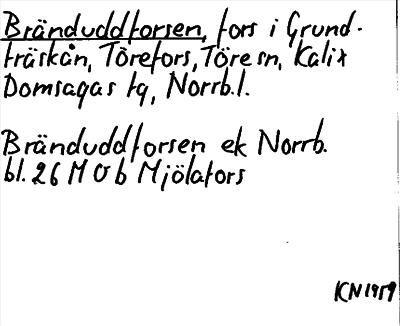 Bränduddforsen, fors i Grund-
träskån, Törefors, Töre sn, Kalix
Domsagas tg, Norrb. l.
Bränduddforsen ek Norrb.
bl. 26 M Ö b Mjölafors
KN 1959